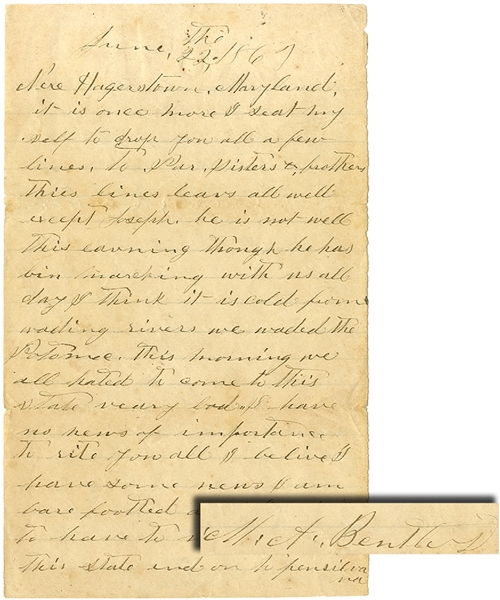 June, the
22, 1863
Nere Hagerstown, Maryland,
it is once more I seat my
self to drop you all a few
lines, to Par, Sisters & brothers
thies lines leavs all well
except Joseph. he is not well
this eavning though he has
bin marching with us all
day I think it is cold from
wading rivers we waded the
Potomac. this morning we
all hated to come to this
state veary bad, I have
no news of importance
to rite you all I belive I
have some news I am
bare footted
to have to
this state and on to pensilva
na
Bentley